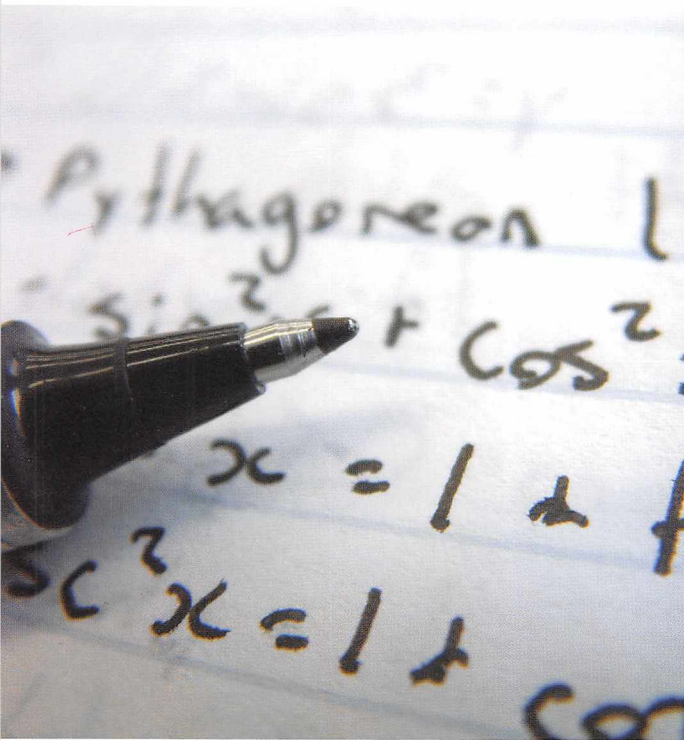 Pythagorean I
sin²x + cos²
x = 1 +
sc²x = 1 + co